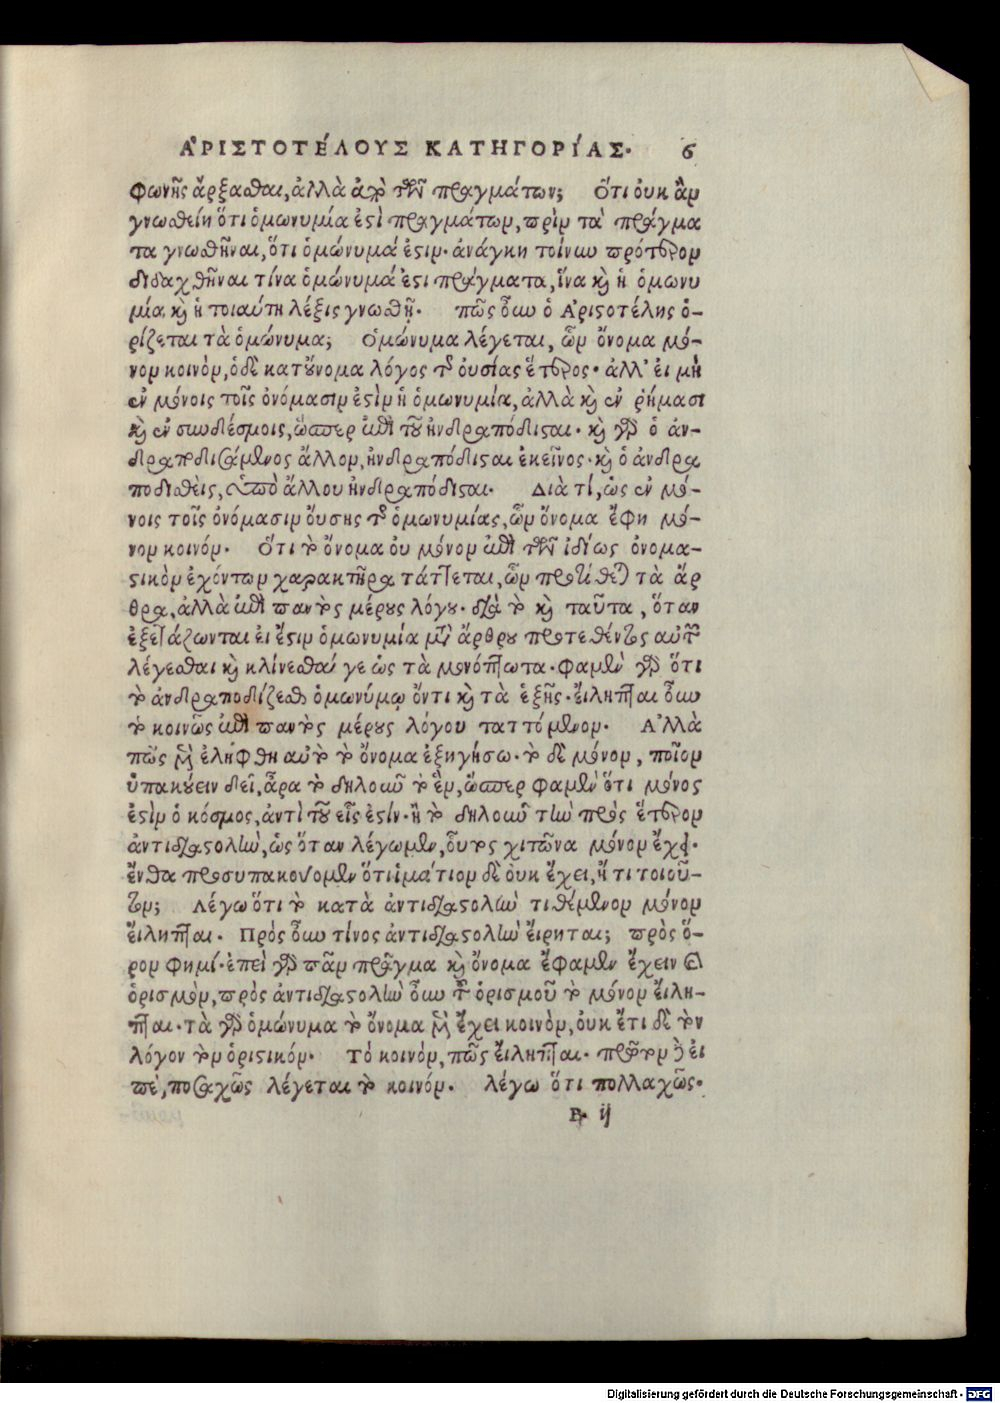 ΑΡΙΣΤΟΤΈΛΟΥΣ ΚΑΤΗΓΟΡΊΑΣ. 6
φωνῆς ἄρξαθαι, ἀλλὰ ἀπὸ τῶν πραγμάτων; Ὅτι ὀυκ ἂν
γνωθείη ὅτι ὁμωνυμία ἐστὶ πραγμάτων, πρὶν τὰ πράγμα
τα γνωθῆναι, ὅτι ὁμώνυμά ἐστιν. ἀνάγκη τοίνυν πρότερον
διδαχθῆναι τίνα ὁμώνυμά ἐστι πράγματα, ἵνα καὶ ἡ ὁμωνυ
μία, καὶ ἡ τοιαύτη λέξις γνωθῇ. πῶς οὖν ὁ Ἀριστοτέλης ὁ-
ρίζεται τὰ ὁμώνυμα; Ὁμώνυμα λέγεται, ὧν ὄνομα μό-
νον κοινὸν, ὁ δὲ κατ' οὔνομα λόγος τῆς ὀυσίας ἕτερος. ἀλλ' ἐι μὴ
ἐν μόνοις τοῖς ὀνόμασιν ἐστὶν ἡ ὁμωνυμία, ἀλλὰ καὶ ἐν ῥήμασι
καὶ ἐν συνδέσμοις, ὥσπερ ἐπὶ τοῦ ἠνδραπόδισται. καὶ γὰρ ὁ ἀν-
δραποδισάμενος ἄλλον, ἠνδραπόδισται ἐκεῖνος. καὶ ὁ ἀνδρα
ποδιθεὶς, ὑπὸ ἄλλου ἠνδραπόδισται. Διὰ τί, ὡς ἐν μό-
νοις τοῖς ὀνόμασιν ὄυσης τῆς ὁμωνυμίας, ὧν ὄνομα ἔφη μό-
νον κοινόν. Ὅτι τὸ ὄνομα ὀυ μόνον ἐπὶ τῶν ἰδίως ὀνομα-
στικὸν ἐχόντων χαρακτῆρα τάττεται, ὧν προτίθεται τὰ ἄρ
θρα, ἀλλὰ ἐπὶ παντὸς μέρους λόγου. διὰ τὸ καὶ ταῦτα, ὅταν
ἐξετάζωνται ἐι ἔστιν ὁμωνυμία μετὰ ἄρθρου προτεθέντος αὐτῶν
λέγεθαι καὶ κλίνεθαί γε ὡς τὰ μονόπτωτα. φαμὲν γὰρ ὅτι
τὸ ἀνδραποδίζεθαι ὁμωνύμῳ ὄντι καὶ τὰ ἑξῆς. ἔιληπται οὖν
τὸ κοινῶς ἐπὶ παντὸς μέρους λόγου ταττόμενον. Ἀλλὰ
πῶς μὲν ἐλήφθη αὐτὸ τὸ ὄνομα ἐξηγήσω. τὸ δὲ μόνον, ποῖον
ὑπακούειν δεῖ, ἆρα τὸ δηλοῦν τὸ ἓν, ὥσπερ φαμὲν ὅτι μόνος
ἐστὶν ὁ κόσμος, ἀντὶ τοῦ εἷς ἐστίν. ἢ τὸ δηλοῦν τὴν πρὸς ἕτερον
ἀντιδιαστολὴν, ὡς ὅταν λέγωμεν, ὅυτος χιτῶνα μόνον ἔχει.
ἔνθα προσυπακούομεν ὅτι ἱμάτιον δὲ ὀυκ ἔχει, ἤ τι τοιοῦ-
τον; Λέγω ὅτι τὸ κατὰ ἀντιδιαστολὴν τιθέμενον μόνον
ἔιληπται. Πρὸς οὖν τίνος ἀντιδιαστολὴν ἔιρηται; πρὸς ὅ-
ρον φημί. ἐπεὶ γὰρ πᾶν πρᾶγμα καὶ ὄνομα ἔφαμεν ἔχειν καὶ
ὁρισμὸν, πρὸς ἀντιδιαστολὴν οὖν τοῦ ὁρισμοῦ τὸ μόνον ἔιλη-
πται. τὰ γὰρ ὁμώνυμα τὸ ὄνομα μὲν ἔχει κοινὸν, ὀυκ ἔτι δὲ τὸν
λόγον τὸν ὁριστικόν. Τὸ κοινὸν, πῶς ἔιληπται. πρότερον δὲ ἐι
πὲ, ποσαχῶς λέγεται τὸ κοινόν. λέγω ὅτι πολλαχῶς.
B ij
Digitalisierung gefördert durch die Deutsche Forschungsgemeinschaft - DFG